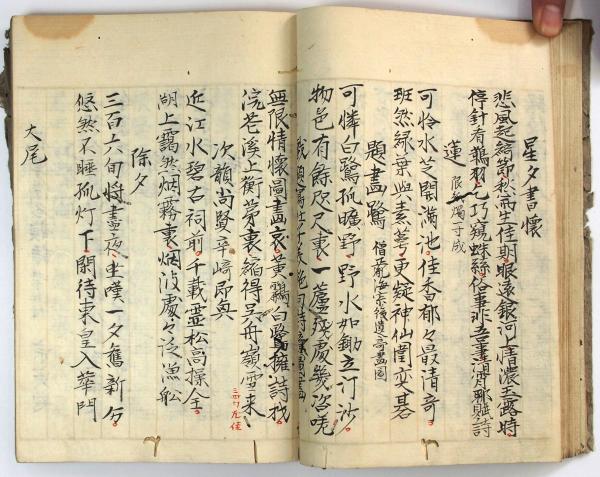 星夕書懷
悲風起節秋而生佳期眼遠銀河上情濃玉露時
停針看鵲羽乞巧窺蛛絲俗事非吾清宵聊賦詩
蓮 限燭寸成
可怜水芝開滿池佳香郁々最清奇
班然綠葉與素萼更疑神仙圍奕碁
題畫鷺 僧
可憐白鷺孤曠野野水如鋤立汀沙
物色有餘咫尺裏一蘆殘處幾咨嗟
無限情懷圖畫哀黃鸝白鷺擁詩
浣花溪上蘅茅裏縮得吳舟嶺雪來
三四尤佳
次韻尚賢辛崎即興
近江水碧古祠前千載霊松高操全
湖上靄然烟霧裏烟波處々泛漁船
除夕
三百六旬將盡夜坐嘆一夕舊新分
悠然不睡孤灯下閑待東皇入蓽門
大尾